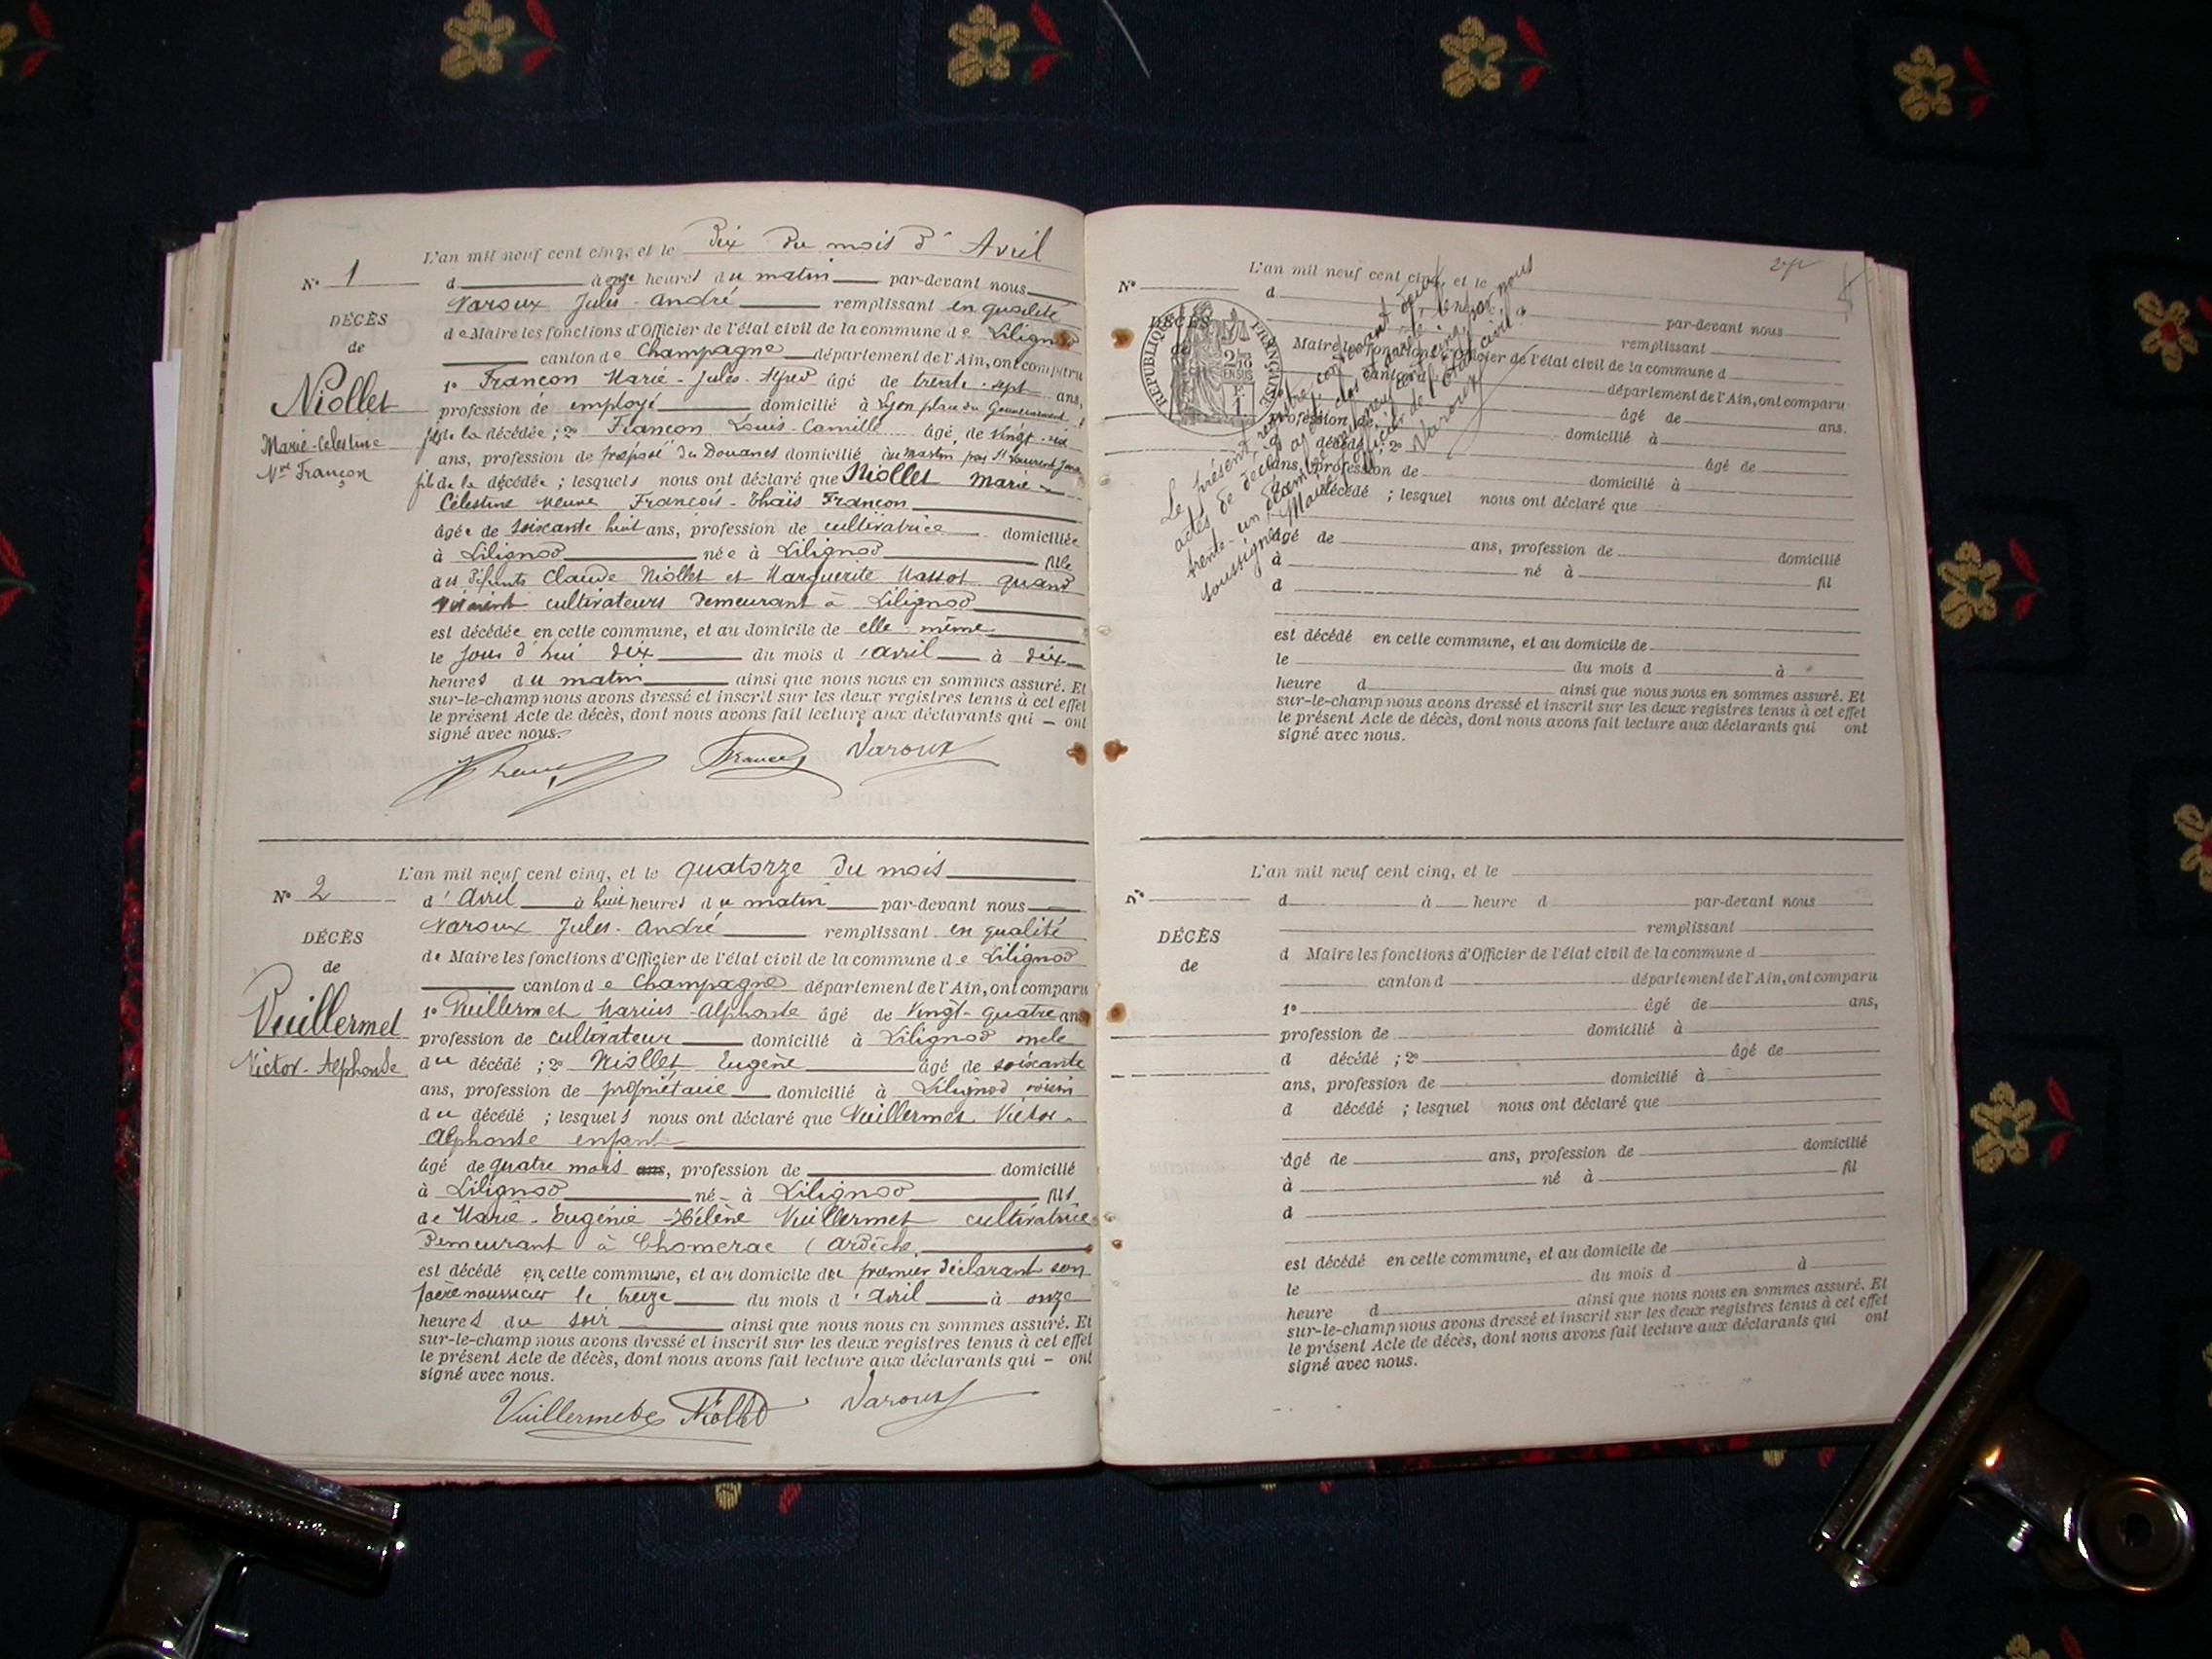 L'an mil neuf cent cinq, et le Dix du mois d' Avril
N° 1
d à onze heures du matin par-devant nous
Varoux Jules-André remplissant en qualité
DÉCÈS
de Maire les fonctions d'Officier de l'état civil de la commune de Lilignod
de
canton de Champagne département de l'Ain, ont comparu
Niollet
1° Françon Marie-Jules-Alfred âgé de trente-sept ans,
profession de employé domicilié à Lyon place du Gouvernement
Marie-Célestine
fils de la décédée ; 2° Françon Louis-Camille âgé de vingt-six
Vve Françon
ans, profession de préposé des Douanes domicilié au Martin par St Laurent
fils de la décédée ; lesquels nous ont déclaré que Niollet Marie-
Célestine veuve François-Thaïs Françon
âgée de soixante huit ans, profession de cultivatrice domiciliée
à Lilignod née à Lilignod fille
des défunts Claude Niollet et Marguerite Massot quand
vivaient cultivateurs demeurant à Lilignod
est décédée en cette commune, et au domicile de elle même
le jour d'hui dix du mois d'avril à dix
heures du matin ainsi que nous nous en sommes assuré. Et
sur-le-champ nous avons dressé et inscrit sur les deux registres tenus à cet effet
le présent Acte de décès, dont nous avons fait lecture aux déclarants qui – ont
signé avec nous.
Françon Varoux
L'an mil neuf cent cinq, et le quatorze du mois
N° 2
d'Avril à huit heures du matin par-devant nous
Varoux Jules-André remplissant en qualité
DÉCÈS
de Maire les fonctions d'Officier de l'état civil de la commune de Lilignod
de
canton de Champagne département de l'Ain, ont comparu
Vuillermet
1° Vuillermet Marius-Alphonse âgé de vingt-quatre ans
profession de cultivateur domicilié à Lilignod oncle
Victor-Alphonse
du décédé ; 2° Niollet Eugène âgé de soixante
ans, profession de propriétaire domicilié à Lilignod voisin
du décédé ; lesquels nous ont déclaré que Vuillermet Victor-
Alphonse enfant
âgé de quatre mois ans, profession de domicilié
à Lilignod né à Lilignod fils
de Marie-Eugénie-Hélène Vuillermet cultivatrice
demeurant à Chomerac (Ardèche
est décédé en cette commune, et au domicile du premier déclarant son
père nourricier le treize du mois d'Avril à onze
heures du soir ainsi que nous nous en sommes assuré. Et
sur-le-champ nous avons dressé et inscrit sur les deux registres tenus à cet effet
le présent Acte de décès, dont nous avons fait lecture aux déclarants qui – ont
signé avec nous.
Vuillermet Niollet Varoux
L'an mil neuf cent cinq, et le
N°
d par-devant nous
remplissant
DÉCÈS
RÉPUBLIQUE FRANÇAISE
Maire les fonctions d'Officier de l'état civil de la commune d
canton d département de l'Ain, ont comparu
âgé de ans.
profession de domicilié à
décédé ; 2° âgé de
ans, profession de domicilié à
décédé ; lesquel nous ont déclaré que
âgé de ans, profession de domicilié
à né à fil
d
est décédé en cette commune, et au domicile de
le du mois d à
heure d ainsi que nous nous en sommes assuré. Et
sur-le-champ nous avons dressé et inscrit sur les deux registres tenus à cet effet
le présent Acte de décès, dont nous avons fait lecture aux déclarants qui ont
signé avec nous.
Le présent registre, contenant deux
actes de décès a été clos et arrêté le
trente-un décembre mil neuf cent cinq, par nous
soussigné Maire officier de l'état civil.
Varoux
L'an mil neuf cent cinq, et le
N°
d à heure d par-devant nous
remplissant
DÉCÈS
d Maire les fonctions d'Officier de l'état civil de la commune d
de
canton d département de l'Ain, ont comparu
1° âgé de ans,
profession de domicilié à
d décédé ; 2° âgé de
ans, profession de domicilié à
d décédé ; lesquel nous ont déclaré que
âgé de ans, profession de domicilié
à né à fil
d
est décédé en cette commune, et au domicile de
le du mois d à
heure d ainsi que nous nous en sommes assuré. Et
sur-le-champ nous avons dressé et inscrit sur les deux registres tenus à cet effet
le présent Acte de décès, dont nous avons fait lecture aux déclarants qui ont
signé avec nous.